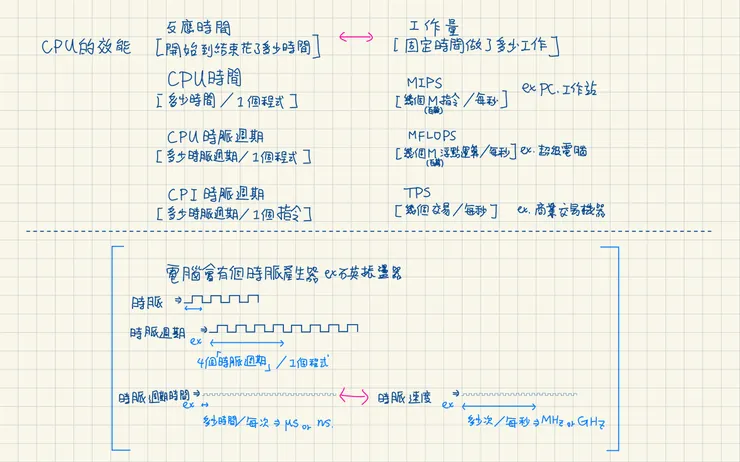 CPU的效能
反應時間 ↔ 工作量
[開始到結束花了多少時間] [固定時間做了多少工作]
CPU時間
[多少時間/1個程式]
MIPS
[幾個M指令/每秒] ex PC.工作站
(百萬)
CPU時脈週期
[多少時脈週期/1個程式]
MFLOPS
[幾個M浮點運算/每秒] ex.超級電腦
(百萬)
CPI時脈週期
[多少時脈週期/1個指令]
TPS
[幾個交易/每秒] ex.商業交易機器
電腦會有個時脈產生器 ex石英振盪器
時脈 ⇒
時脈週期 ⇒
ex
4個「時脈週期」/1個程式
時脈週期時間 ⇒ ↔ 時脈速度 ⇒
ex ex
多少時間/每次 ⇒ μs or ns.
多少次/每秒 ⇒ MHz or GHz